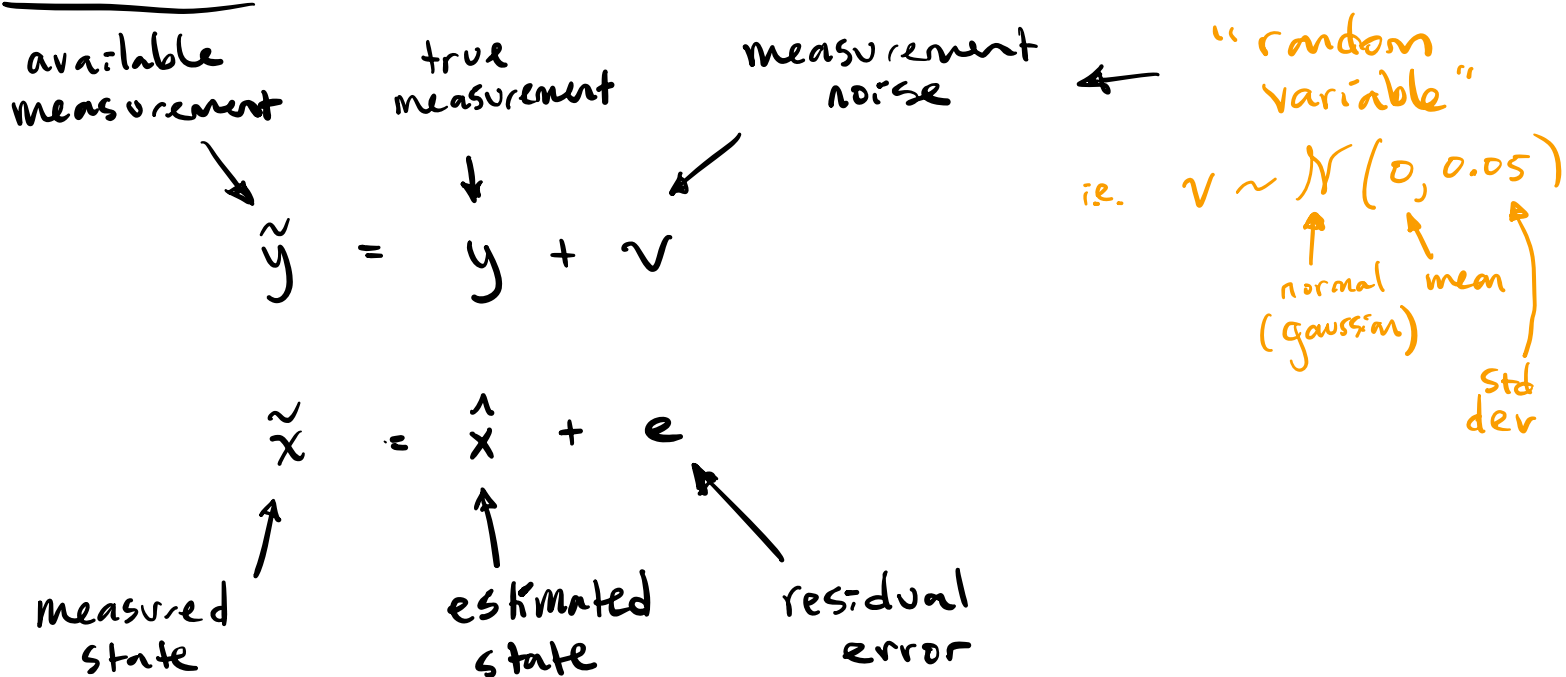 available
measurement
true
measurement
measurement
noise
"random
variable"
i.e. v ~ N(0, 0.05)
normal
(gaussian)
mean
std
dev
ỹ = y + v
x̃ = x̂ + e
measured
state
estimated
state
residual
error